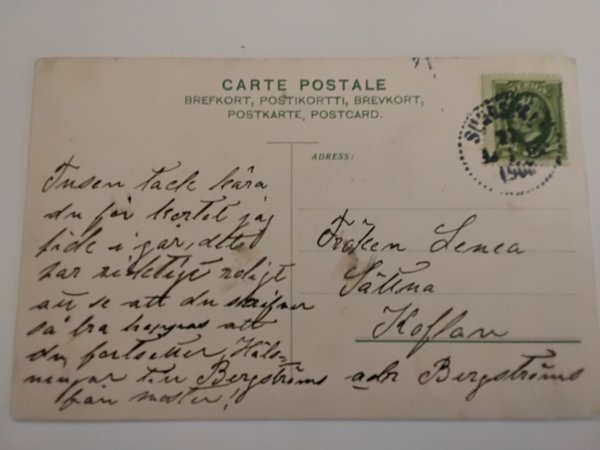 CARTE POSTALE
BREFKORT, POSTIKORTTI, BREVKORT,
POSTKARTE, POSTCARD.
ADRESS:
Tusen tack kära
du för kortet jag
fick i går, det
var riktigt roligt
att se att du skrifver
så bra hoppas att
du fortsetter, Häls-
ningar till Bergströms
från moster!
Fröken Linnea
Sättna
Koflan
adr Bergströms